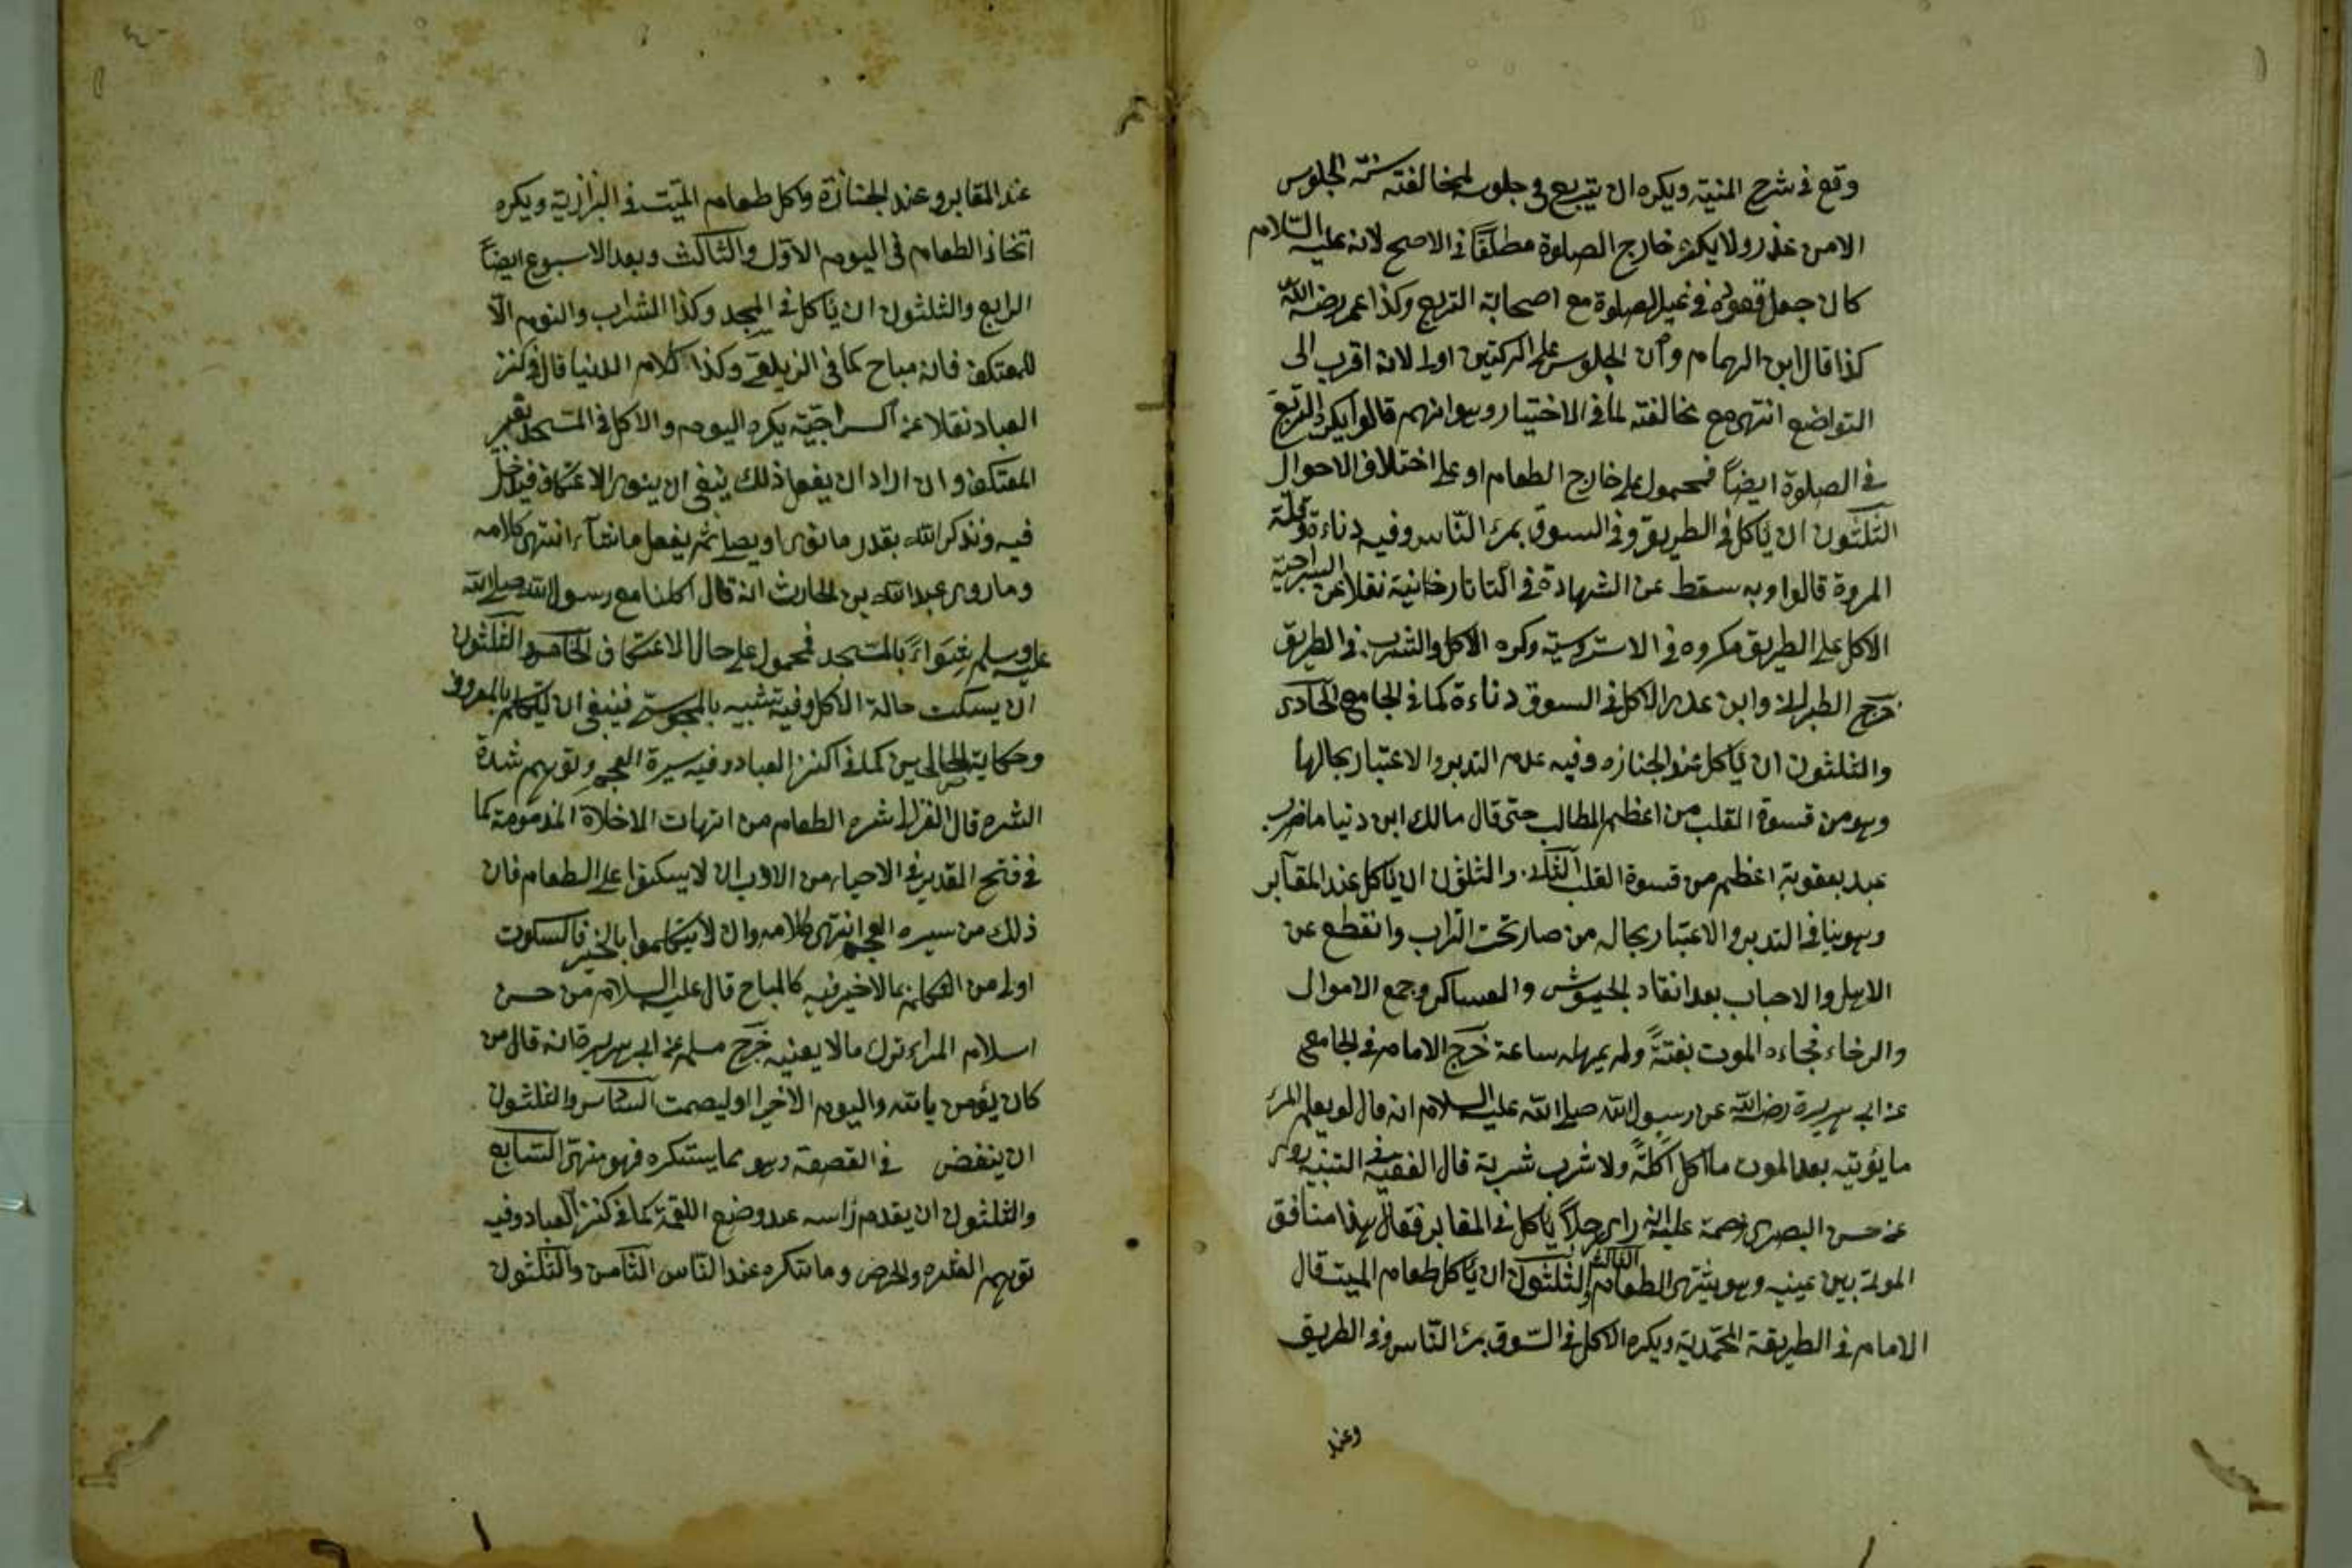 وقع في شرح المنية ويكره ان يتربع في جلوسه لمخالفته سنة الجلوس
الا من عذر ولا يكره خارج الصلوة مطلقًا في الاصح لانه عليه السّلام
كان جعل قعوده في غير الصلوة مع اصحابه التربع وكذا عمر رضي الله
كذا قال ابن الهمام وأن الجلوس على الركبتين اولى لانه اقرب الى
التواضع انتهى مع مخالفته لما في الاختيار وهو انهم قالوا يكره التربع
في الصلوة ايضًا فمحمول على خارج الطعام او على اختلاف الاحوال
الثلثون ان يأكل في الطريق وفي السوق بمرء النّاس وفيه دناءة وقلة
المروة قالوا وبه سقط عن الشهادة في التاتارخانية نقلا عن السراجية
الاكل على الطريق مكروه في وكره الاكل والشرب في الطريق
خرج الطبراني وابن عدي الاكل في السوق دناءة كما في الجامع الحادي
والثلثون ان يأكل عند الجنازه وفيه عدم التدبر والاعتبار بحالها
وهو من قسوة القلب من اعظم المطالب حتى قال مالك ابن دينا ما ضرب
عبد بعقوبة اعظم من قسوة القلب والثلثون ان يأكل عند المقآبر
وهو ينافي التدبر والاعتبار بحال من صار تحت التراب وانقطع عن
الاهل والاحباب بعد انقاد الجيوش والعساكر وجمع الاموال
والرخاء فجاءه الموت بغتةً ولم يمهله ساعة خرج الامام في الجامع
عن ابي هريرة رضي الله عن رسول الله صلى الله عليه السلام انه قال لو يعلم المرء
ما يؤتيه بعد الموت ما اكل اكلةً ولا شرب شربة قال الفقيه في التنبيه روى
عن حسن البصري رحمة عليه انه راى رجلاً يأكل في المقابر فقال هذا منافق
الموتة بين عينيه وهو يشتهى الطعام الثالث والثلثون ان يأكل طعام الميت قال
الامام في الطريقة المحمّدية ويكره الاكل في السّوق بمرء النّاس وفي الطريق
وعند
عند المقابر وعند الجنازة واكل طعام الميّت في البزازية ويكره
اتخاذ الطعام في اليوم الاوّل والثالث وبعد الاسبوع ايضًا
الرابع والثلثون ان يأكل في المسجد وكذا الشراب والنوم الّا
للمعتكف فانه مباح كما في الزيلعي وكذا كلام الدنيا قال في كنز
العباد نقلا عن السراجيّة يكره اليوم والاكل في المسجد لغير
المعتكف وان اراد ان يفعل ذلك ينبغي ان ينوى الاعتكاف فيدخل
فيه ونذكر الله بقدر ما نوى او يصلى ثم يفعل ما شآء انتهى كلامه
وما روى عبد الله بن الحارث انه قال اكلنا مع رسول الله صلى الله
عليه وسلم شواءً بالمسجد فمحمول على حال الاعتكاف الخامس والثلثون
ان يسكت حالة الاكل وفيه تشبيه بالمجوسي فينبغي ان يتكلم بالمعروف
وحكاية الصالحين كما في كنز العباد وفيه سيرة العجم وتوهم شدة
الشره قال الغزالى شره الطعام من امهات الاخلاق المذمومة كما
في فتح القدير في الاحياء من الادب ان لا يسكتوا على الطعام فان
ذلك من سيره العجم انتهى كلامه وان لا يتكلموا بالخير فالسكوت
اولى من التكلم بما لا خير فيه كالمباح قال عليه السلام من حسن
اسلام المراء ترك ما لا يعنيه خرج مسلم عن ابي هريرة انه قال من
كان يؤمن بالله واليوم الاخر او ليصمت السّادس والثلثون
ان ينفض في القصعة وهو مما يستنكره فهو منهى السّابع
والثلثون ان يقدم رأسه عند وضع اللقمة كما في كنز العباد وفيه
توهم الشره والحرص وما تنكره عند النّاس الثّامن والثّلثون